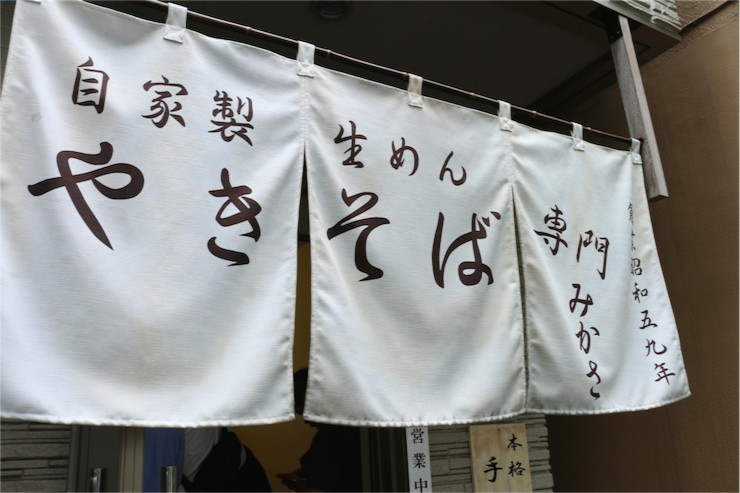 自家製 生めん
やきそば
専門
みかさ
創業昭和五九年
営業中
本格
手